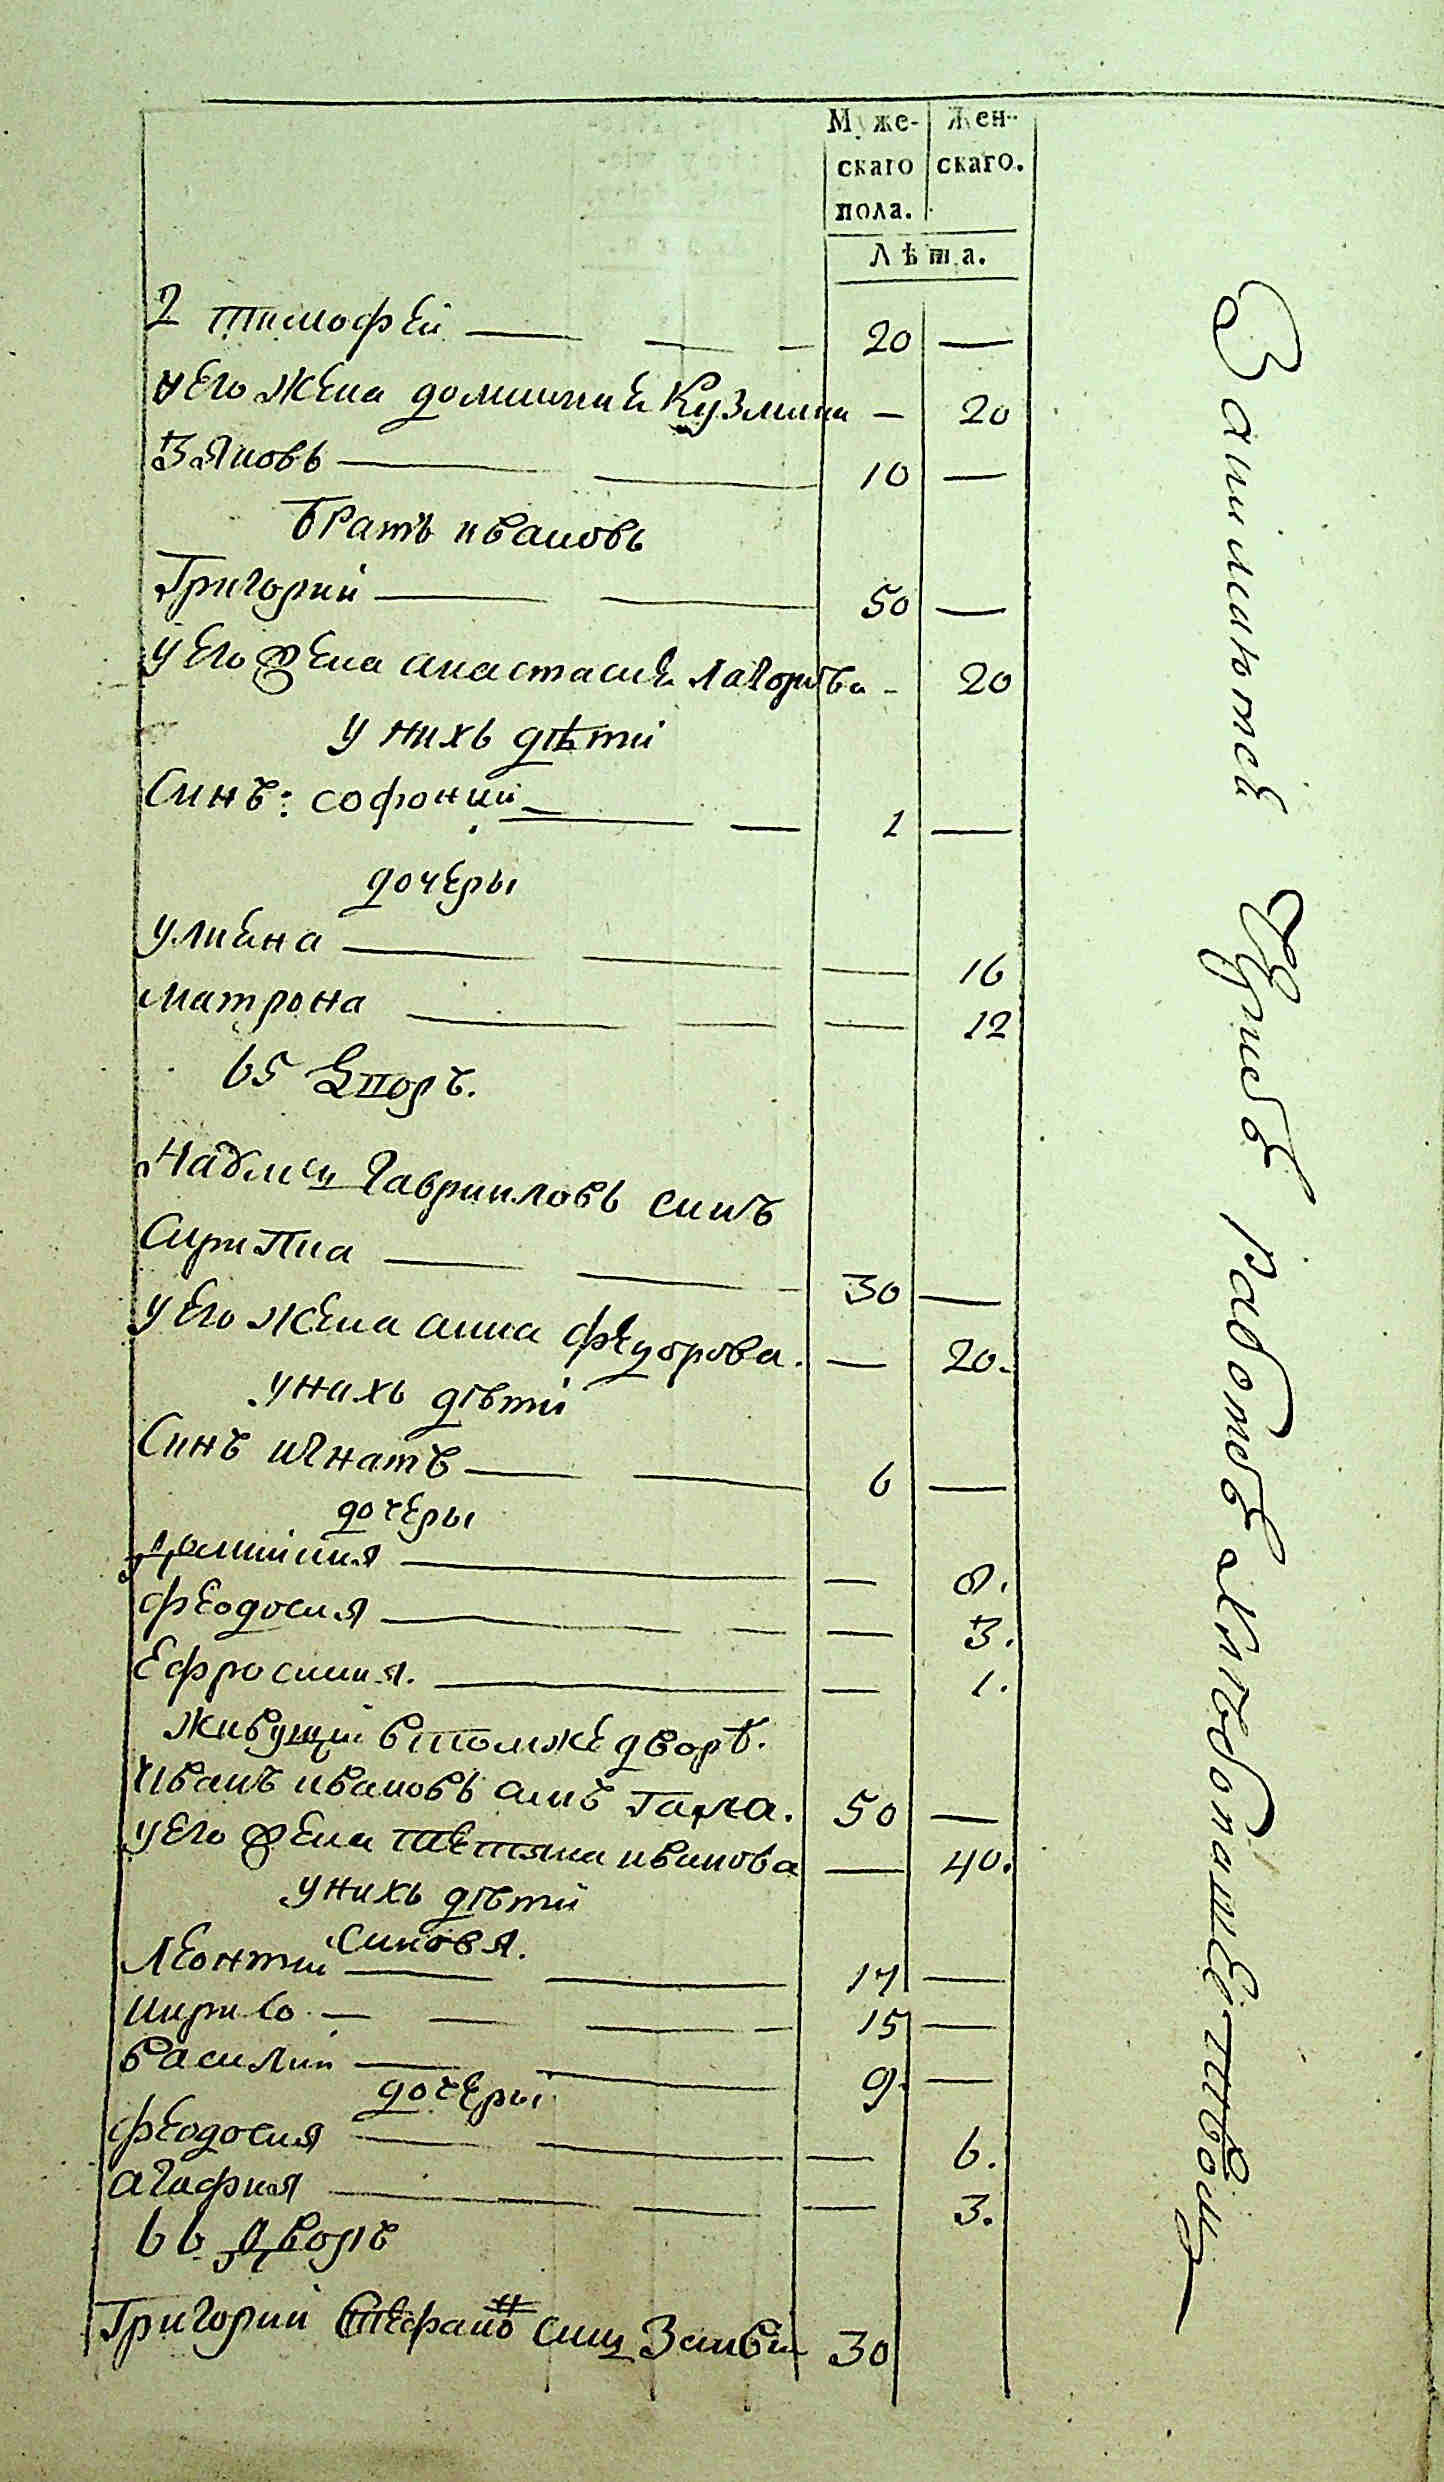 Муже-
скаго
пола.
Жен-
скаго.
Лѣта.
2 тимофей — 20 —
уего жена домникия Кузмина — 20
3 яковъ — 10 —
братъ ивановъ
Григорий — 50 —
уего жена анастасия — 20
у нихъ дѣти
Синъ: софоний — 1 —
дочеры
улияна — 16
матрона — 12
65 Дворъ.
Гаврииловъ синъ
30 —
уего жена анна федорова. — 20.
унихъ дѣти
Синъ игнатъ — 6 —
дочеры
домникия — 8.
феодосия — 3.
Ефросиния. — 1.
живущии втомже дворѣ.
Иванъ ивановъ синъ 50 —
уего жена тетяна иванова — 40.
унихъ дѣти
Синовя.
Леонтий — 17 —
кирило — 15 —
василий — 9. —
дочеры
феодосия — 6.
агафия — 3.
66 Дворъ
Григорий Стефановъ синъ 30
Занимается
работою